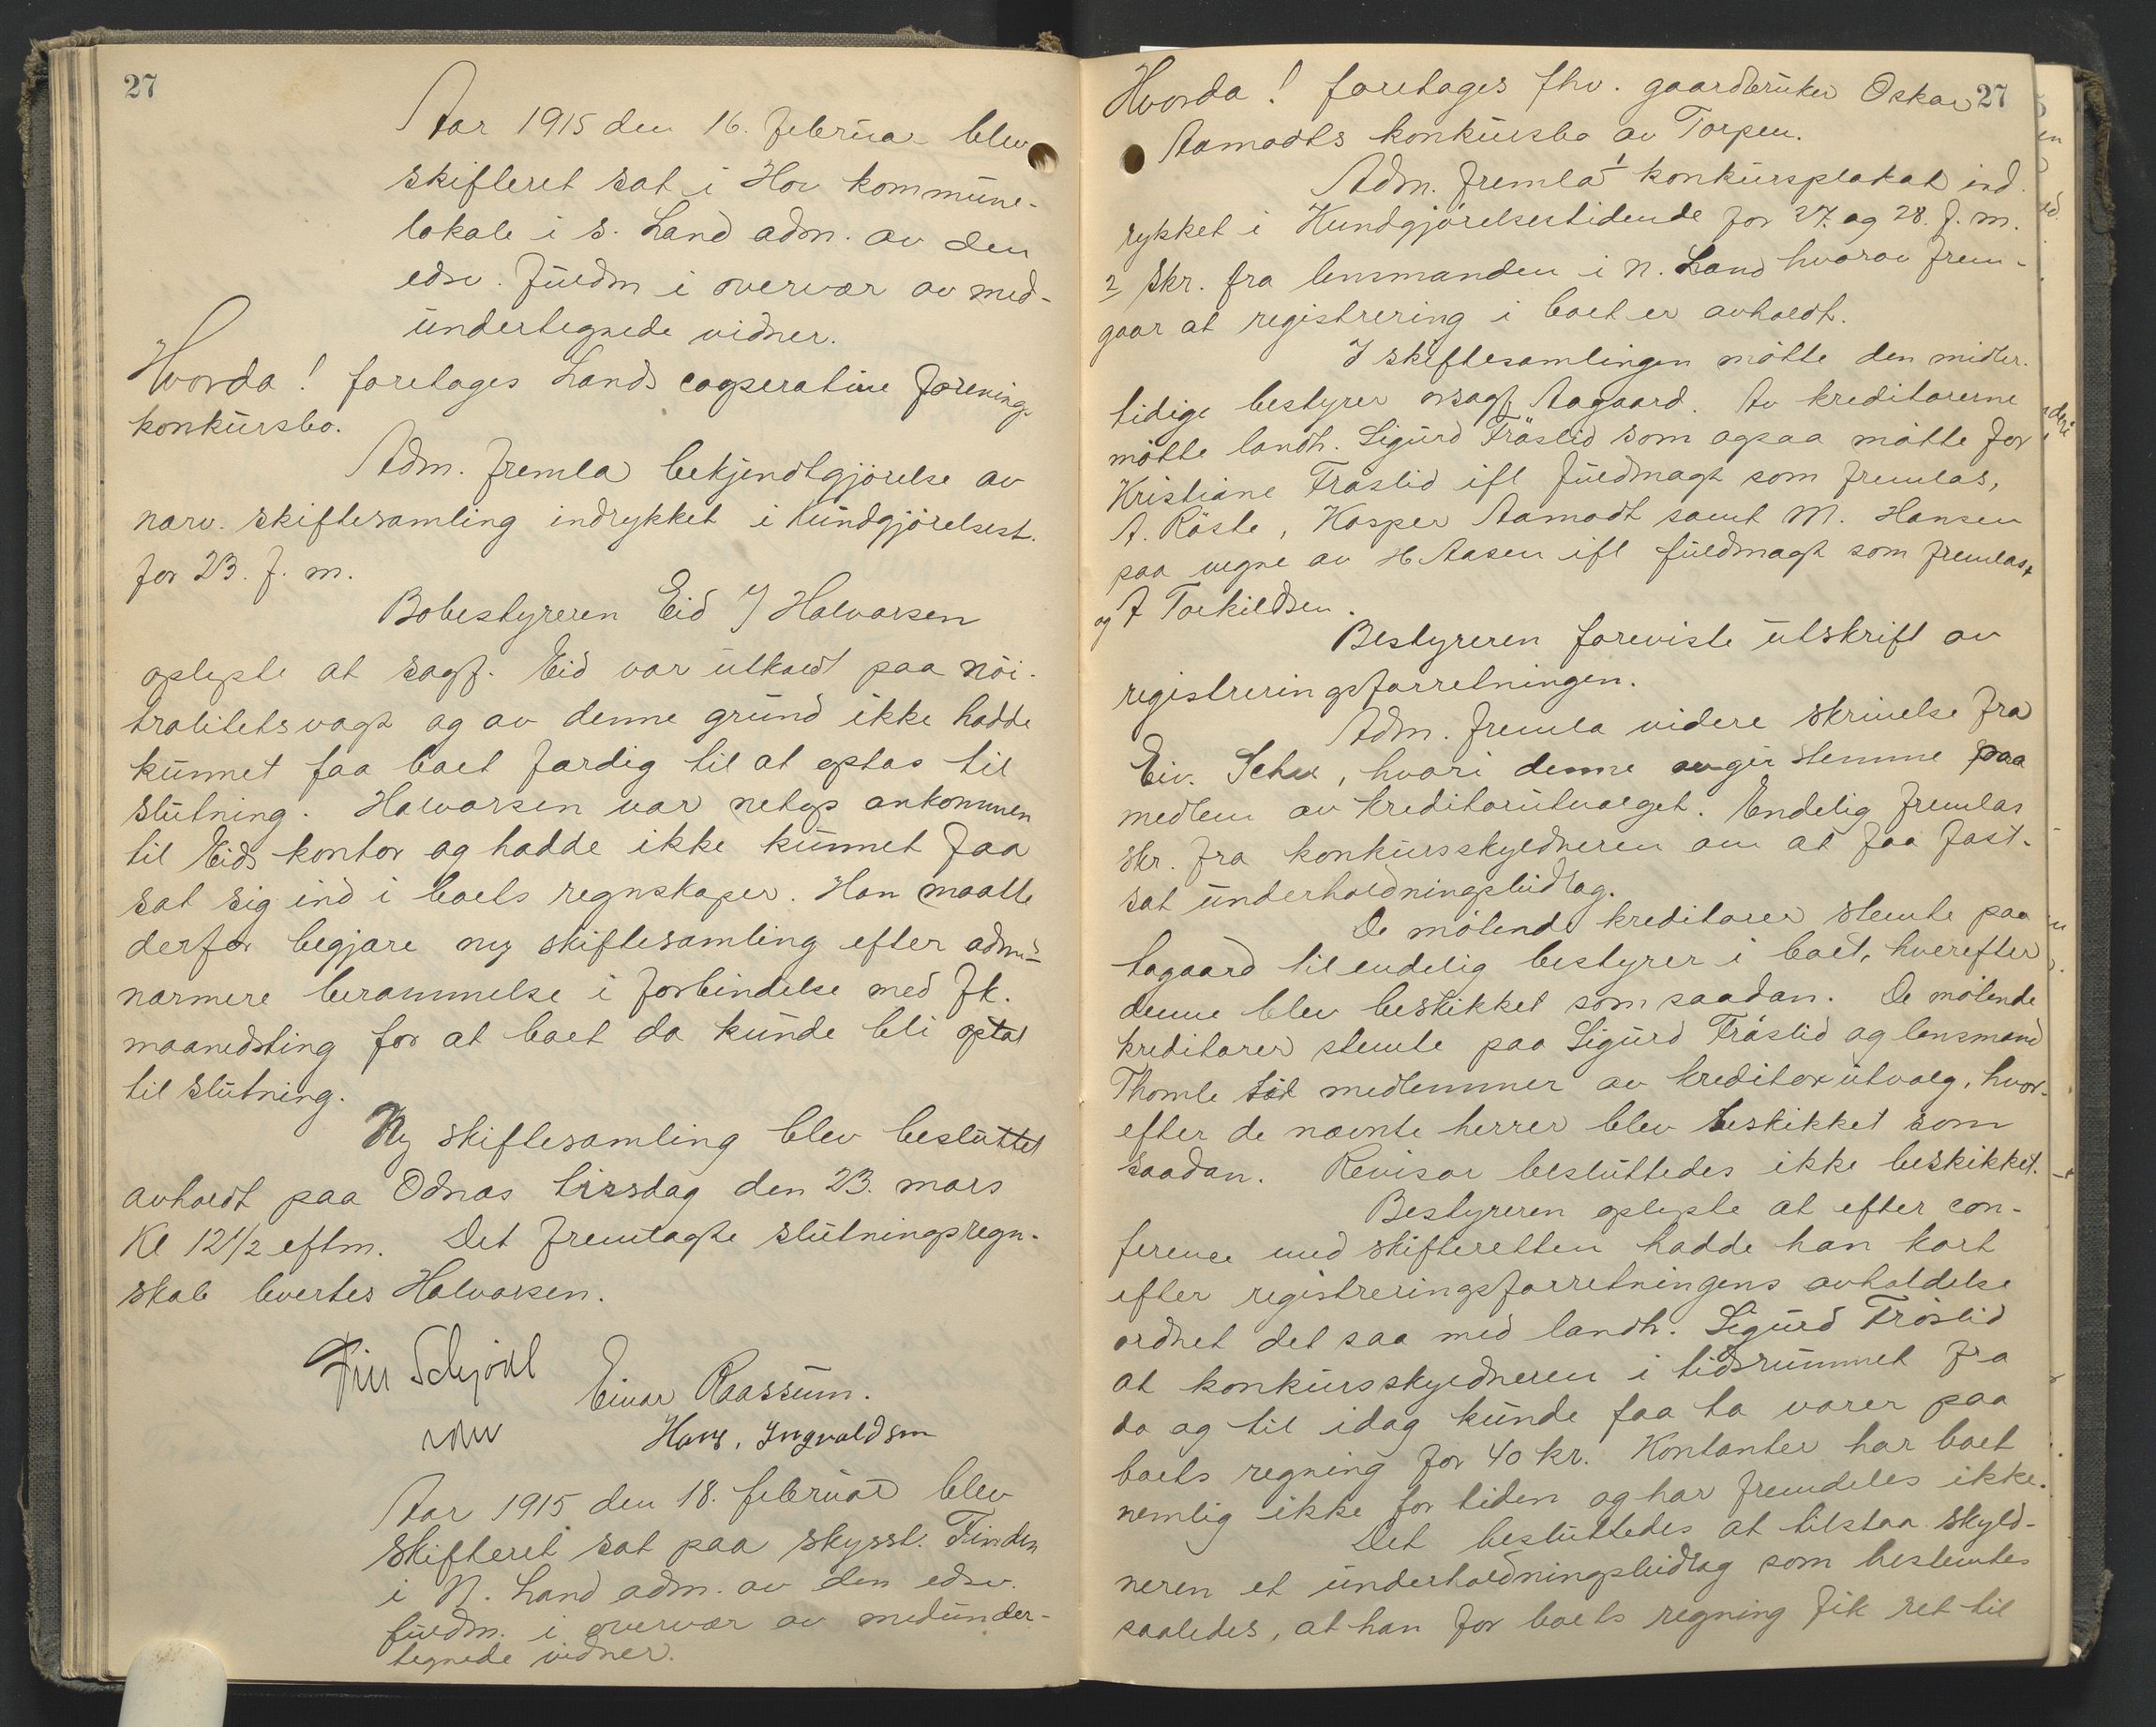 27
Aar 1915 den 16. februar blev
skifteret sat i Hov kommune-
lokale i S. Land adm. av den
edsv. fuldm i overvær av med-
undertegnede vidner.
Hvorda! foretages Lands cooperative forenings
konkursbo.
Adm. fremla bekjendtgjørelse av
nærv. skiftesamling indrykket i Kundgjørelsest.
for 23. f. m.
Bobestyreren Eid / Halvorsen
oplyste at sagf. Eid var utkaldt paa nøi-
tralitetsvagt og av denne grund ikke hadde
kunnet faa boet færdig til at optas til
slutning. Halvorsen var netop ankommen
til Eids kontor og hadde ikke kunnet faa
sat sig ind i boets regnskaper. Han maatte
derfor begjære ny skiftesamling efter adm's
nærmere berammelse i forbindelse med fk.
maanedsting for at boet da kunde bli optat
til slutning.
Ny skiftesamling blev besluttet
avholdt paa Odnæs tirsdag den 23. mars
Kl 12 1/2 eftm. Det fremlagte slutningsregn-
skab levertes Halvorsen.
Schjødt
Einar Raassum.
Hans. Ingvaldsen
Aar 1915 den 18. februar blev
skifteret sat paa skysst. Finden
i N. Land adm. av den edsv.
fuldm. i overvær av medunder-
tegnede vidner.
27
Hvorda! foretages fhv. gaardbruker Oskar
Aamodts konkursbo av Torpen.
Adm. fremla 1 konkursplakat ind-
rykket i Kundgjørelsestidende for 27. og 28. f. m.
2 Skr. fra lensmanden i N. Land hvorav frem-
gaar at registrering i boet er avholdt.
I skiftesamlingen møtte den midler-
tidige bestyrer o.r.sagf. Aagaard. Av kreditorerne
møtte landh. Sigurd Frøslid som ogsaa møtte for
Kristiane Frøslid ifl fuldmagt som fremlas,
A. Røste, Kasper Aamodt samt M. Hansen
paa vegne av H Aasen ifl fuldmagt som fremlas
og A Torkildsen.
Bestyreren foreviste utskrift av
registreringsforretningen.
Adm. fremla videre skrivelse fra
Eiv. , hvori denne avgir stemme paa
medlem av kreditorutvalget. Endelig fremlas
skr. fra konkursskyldneren om at faa fast-
sat underholdningsbidrag.
De møtende kreditorer stemte paa
Aagaard til endelig bestyrer i boet, hverefter
denne blev beskikket som saadan. De møtende
kreditorer stemte paa Sigurd Frøslid og lensmand
Thomle til medlemmer av kreditorutvalg, hvor-
efter de nævnte herrer blev beskikket som
saadan. Revisor besluttedes ikke beskikket.
Bestyreren oplyste at efter con-
ference med skifteretten hadde han kort
efter registreringsforretningens avholdelse
ordnet det saa med landh. Sigurd Frøslid
at konkursskyldneren i tidsrummet fra
da og til idag kunde faa ta varer paa
boets regning for 40 kr. Kontanter har boet
nemlig ikke for tiden og har fremdeles ikke.
Det besluttedes at tilstaa skyld-
neren et underholdningsbidrag som bestemtes
saaledes, at han for boets regning fik ret til